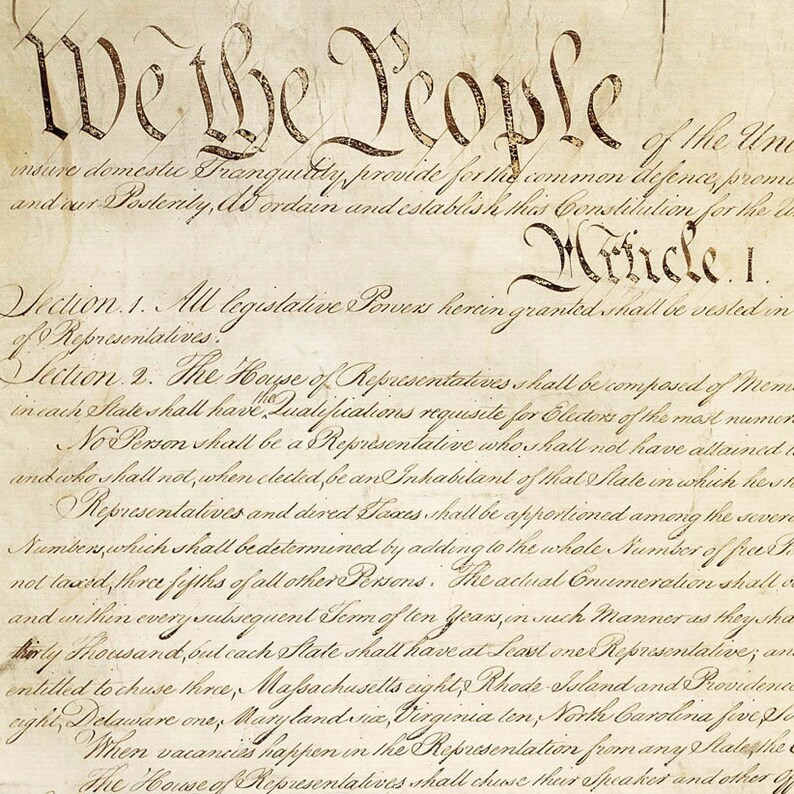 We the People of the Uni
insure domestic Tranquility, provide for the common defence, promo
and our Posterity, do ordain and establish this Constitution for the U
Article. I.
Section. 1. All legislative Powers herein granted shall be vested in
of Representatives.
Section. 2. The House of Representatives shall be composed of Mem
in each State shall have the Qualifications requisite for Electors of the most numer
No Person shall be a Representative who shall not have attained t
and who shall not, when elected, be an Inhabitant of that State in which he sh
Representatives and direct Taxes shall be apportioned among the severa
Numbers, which shall be determined by adding to the whole Number of free P
not taxed, three fifths of all other Persons. The actual Enumeration shall b
and within every subsequent Term of ten Years, in such Manner as they sha
thirty Thousand, but each State shall have at Least one Representative; an
entitled to chuse three, Massachusetts eight, Rhode-Island and Providence
eight, Delaware one, Maryland six, Virginia ten, North Carolina five, So
When vacancies happen in the Representation from any State, the E
The House of Representatives shall chuse their Speaker and other Off